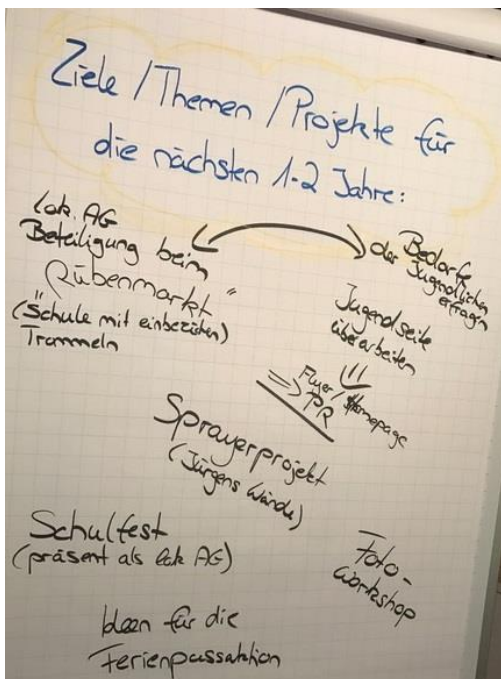 Ziele / Themen / Projekte für
die nächsten 1-2 Jahre:
lok. AG
Beteiligung beim
"Rübenmarkt"
(Schule mit einbeziehen)
Trommeln
Bedarfe
der Jugendlichen
erfragen
Jugendseite
überarbeiten
Flyer / Homepage
=> PR
Sprayerprojekt
(Jürgens Wände)
Schulfest
(präsent als lok AG)
Foto-
workshop
Ideen für die
Ferienpassaktion